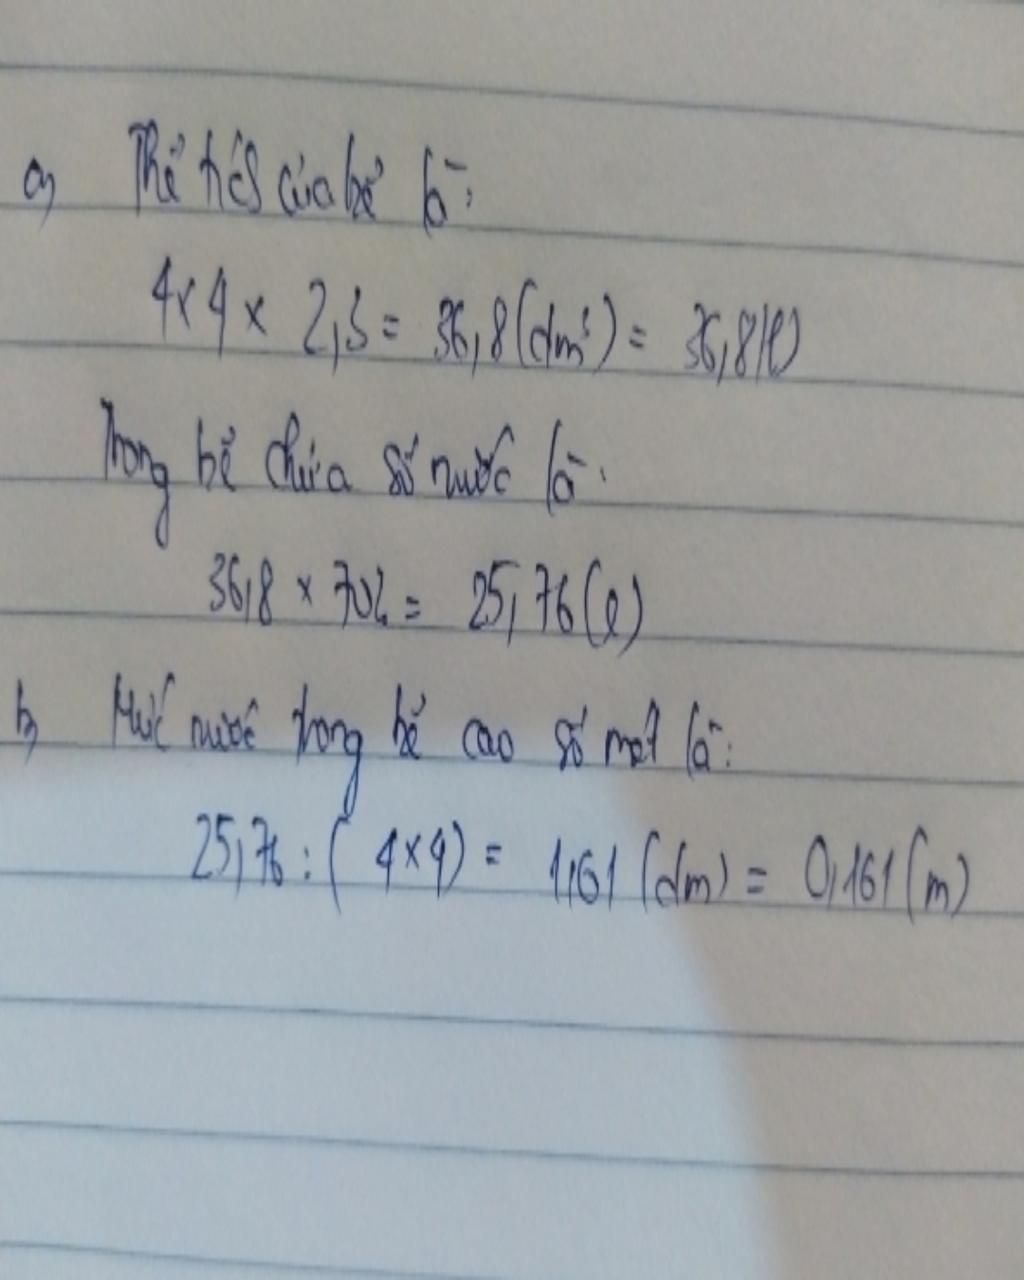 a, Thể tích của bể là:
4 x 4 x 2,3 = 36,8 (dm³) = 36,8 (l)
Trong bể chứa số nước là:
36,8 x 70% = 25,76 (l)
b, Mức nước trong bể cao số mét là:
25,76 : ( 4 x 4) = 1,61 (dm) = 0,161 (m)